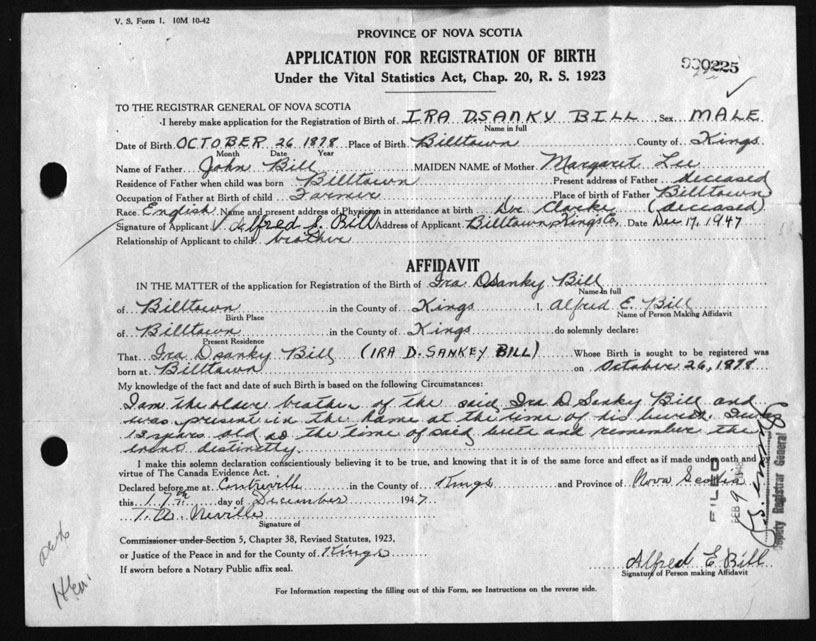 V. S. Form 1. 10M 10-42
PROVINCE OF NOVA SCOTIA
APPLICATION FOR REGISTRATION OF BIRTH
Under the Vital Statistics Act, Chap. 20, R. S. 1923
900225
TO THE REGISTRAR GENERAL OF NOVA SCOTIA
I hereby make application for the Registration of Birth of IRA DSANKY BILL Sex MALE
Name in full
Date of Birth OCTOBER 26 1878 Place of Birth Billtown County of Kings
Month Date Year
Name of Father John Bill MAIDEN NAME of Mother Margaret Lee
Residence of Father when child was born Billtown Present address of Father deceased
Occupation of Father at Birth of Child Farmer Place of birth of Father Billtown
Race English Name and present address of Physician in attendance at birth Doc Clarke (deceased)
Signature of Applicant Alfred E. Bill Address of Applicant Billtown Kings Co, Date Dec 17, 1947
Relationship of Applicant to child brother
AFFIDAVIT
IN THE MATTER of the application for Registration of the Birth of Ira DSanky Bill
Name in full
of Billtown in the County of Kings I, Alfred E. Bill
Birth Place Name of Person Making Affidavit
of Billtown in the County of Kings do solemnly declare:
Present Residence
That Ira Dsanky Bill (IRA D. SANKEY BILL) Whose Birth is sought to be registered was
born at Billtown on October 26, 1878
My knowledge of the fact and date of such Birth is based on the following Circumstances:
I am the older brother of the said Ira D Sanky Bill and
was present in the home at the time of his birth. I was
13 years old at the time of said birth and remember the
event distinctly.
I make this solemn declaration conscientiously believing it to be true, and knowing that it is of the same force and effect as if made under oath and
virtue of The Canada Evidence Act.
Declared before me at Centreville in the County of Kings and Province of Nova Scotia
this 17th day of December 1947
T. A. Neville
Signature of
Commissioner under Section 5, Chapter 38, Revised Statutes, 1923,
or Justice of the Peace in and for the County of Kings
If sworn before a Notary Public affix seal.
Alfred E Bill
Signature of Person making Affidavit
FILED
FEB 9
Deputy Registrar General
For Information respecting the filling out of this Form, see Instructions on the reverse side.